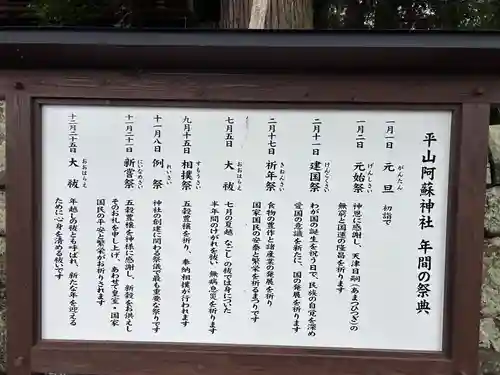 平山阿蘇神社 年間の祭典
一月一日 元旦 がんたん 初詣で
一月二日 元始祭 げんしさい
神恩に感謝し、天津日嗣(あまつひつぎ)の
無窮と国運の隆昌を祈ります
二月十一日 建国祭 けんこくさい
わが国の誕生を祝う日で、民族の自覚を深め
愛国の意識を新たに、国の発展を祈ります
二月十七日 祈年祭 きねんさい
食物の豊作と諸産業の発展を祈り
国家国民の安泰と繁栄を祈るまつりです
七月五日 大祓 おおはらえ
七月の夏越 なごし の祓では身にいた
本年間のけがれを祓い 無病息災を祈ります
九月十五日 相撲祭 すもうさい
五穀豊穣を祈り、奉納相撲が行われます
十一月八日 例祭 れいさい
神社の創建に関わる祭儀で最も重要な祭りです
十二月二十一日 新嘗祭 にいなめさい
五穀豊穣を神様に感謝し、新穀をお供えし
そのお礼を申し上げ、あわせて皇室・国家
国民の平安と繁栄がお祈りされます
十二月二十五日 大祓 おおはらえ
年越しの祓とも呼ばれ、新たな年を迎える
ために心身を清める祓いです